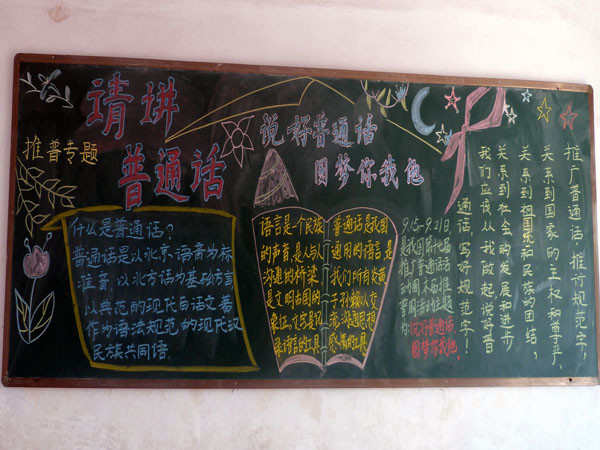 请讲
普通话
推普专题
说好普通话
圆梦你我他
什么是普通话?
普通话是以北京语音为标
准音,以北方话为基础方言
以典范的现代白话文著
作为语法规范的现代汉
民族共同语.
语言是一个民族
的声音,是人与人
沟通的桥梁
是文明古国的
象征。文字是记
录语言的工具
普通话是我国
通用的语言是
我们所有炎黄
子孙赖以交
流沟通思想
感情的工具
9.15-9.21日
是我国第十七届
推广普通话
说好普通话
圆梦你我他.
推广普通话,推行规范字,
关系到国家的主权和尊严,
关系到祖国和民族的团结,
关系到社会的发展和进步
我们应该从我做起说好普
通话,写好规范字!